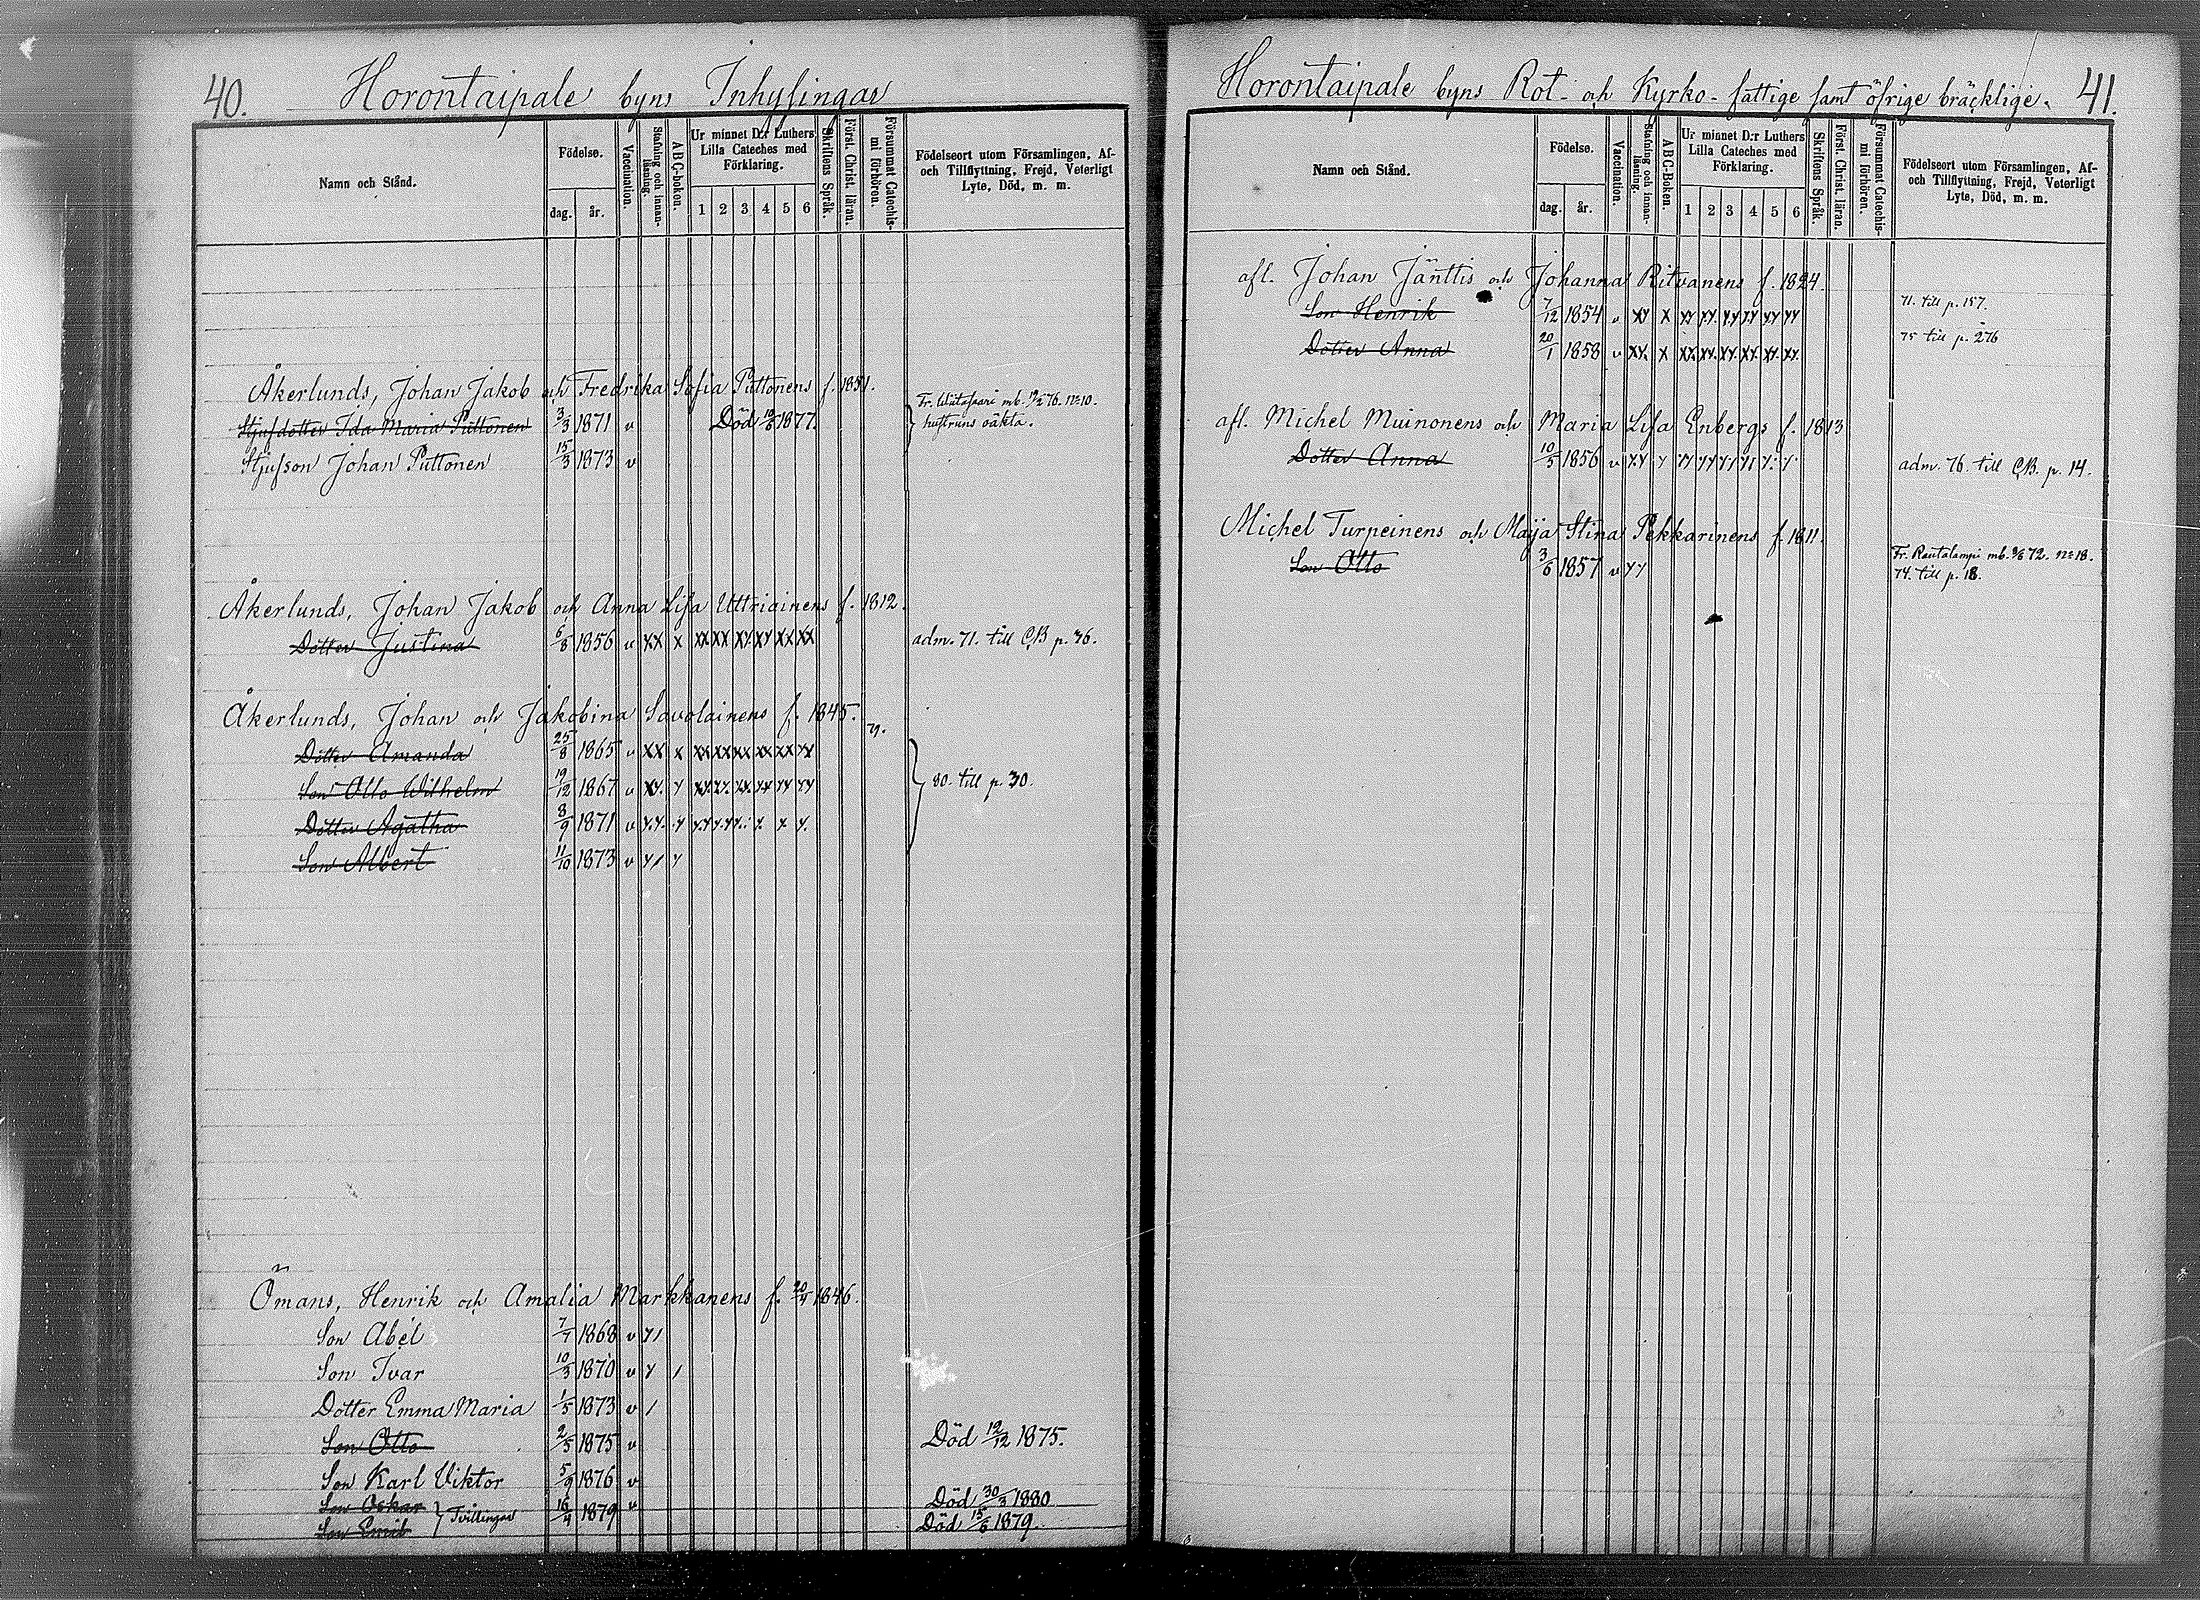 40. Horontaipale byns Inhysingar
Namn och Stånd.
Födelse.
dag. år.
Vaccination.
Stafning och innan-läsning.
ABC-boken.
Ur minnet D:r Luthers Lilla Cateches med Förklaring.
1 2 3 4 5 6
Skriftens Språk.
Först. Christ. läran.
Försummat Catechis-mi förhören.
Födelseort utom Församlingen, Af- och Tillflyttning, Frejd, Veterligt Lyte, Död, m. m.
Åkerlunds, Johan Jakob och Fredrika Sofia Puttonens f. 1851.
Stjufdotter Ida Maria Puttonen 3/3 1871 v Död 1877. Fr. Wiitasaari mb. 76. n:o 10.
Stjufson Johan Puttonen 15/3 1873 v hustruns oäkta.
Åkerlunds, Johan Jakob och Anna Lisa Uttriainens f. 1812.
Dotter Justina 6/8 1856 v xx x xx xx xx xx xx xx adm. 71. till CB p. 36.
Åkerlunds, Johan och Jakobina Savolainens f. 1845.
79.
Dotter Amanda 25/8 1865 v xx x xx xx xx xx xx xx
Son Otto Wilhelm 19/12 1867 v 80. till p. 30.
Dotter Agatha 8/9 1871 v
Son Albert 11/10 1873 v
Ömans, Henrik och Amalia Markkanens f. 1846.
Son Abel 7/7 1868 v
Son Ivar 10/3 1870 v
Dotter Emma Maria 1/5 1873 v
Son Otto 2/5 1875 v Död 12/12 1875.
Son Karl Viktor 5/9 1876 v
Son Oskar } Tvillingar 16/4 1879 v Död 30/3 1880
Son Emil Död 15/6 1879.
Horontaipale byns Rot- och Kyrko-fattige samt öfrige bräcklige. 41.
Namn och Stånd.
Födelse.
dag. år.
Vaccination.
Stafning och innan-läsning.
ABC-Boken.
Ur minnet D:r Luthers Lilla Cateches med Förklaring.
1 2 3 4 5 6
Skriftens Språk.
Först. Christ. läran.
Försummat Catechis-mi förhören.
Födelseort utom Församlingen, Af- och Tillflyttning, Frejd, Veterligt Lyte, Död, m. m.
afl. Johan Jänttis och Johanna Ritvanens f. 1824.
Son Henrik 7/12 1854 v 71. till p. 157.
Dotter Anna 20/1 1858 v 75 till p. 276
afl. Michel Muinonens och Maria Lisa Enbergs f. 1813
Dotter Anna 10/5 1856 v adm. 76. till CB. p. 14.
Michel Turpeinens och Maija Stina Pekkarinens f. 1811.
Son Otto 3/6 1857 v Fr. Rautalampi mb. 72. n:o 18.
74. till p. 18.